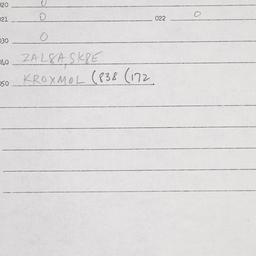 020 0
021 0 022 0
030 0
040 ZAL8A,SK8E
050 KROXMOL (838 (172